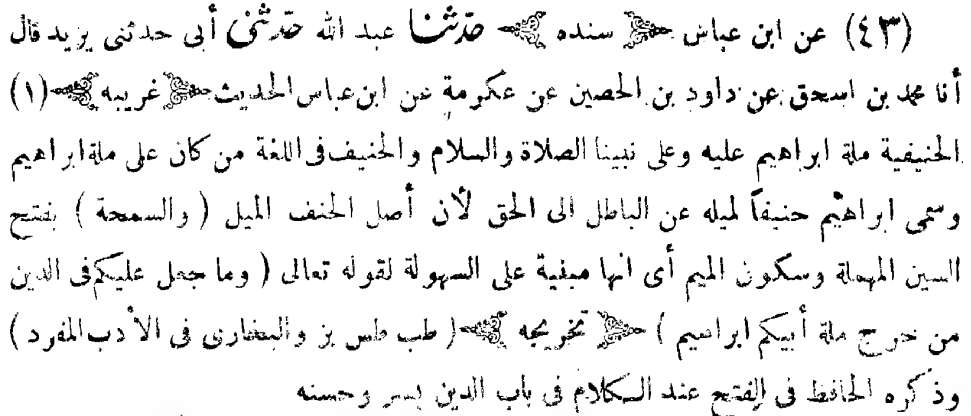 (٤٣) عن ابن عباس ﴿ سنده ﴾ حدثنا عبد الله حدثنى أبى حدثنى يزيد قال
أنا محمد بن اسحق عن داود بن الحصين عن عكرمة عن ابن عباس الحديث ﴿ غريبه ﴾ (١)
الحنيفية ملة ابراهيم عليه وعلى نبينا الصلاة والسلام والحنيف فى اللغة من كان على ملة ابراهيم
وسمى ابراهيم حنيفاً لميله عن الباطل الى الحق لأن أصل الحنف الميل ( والسمحة ) بفتح
السين المهملة وسكون الميم أى انها مبنية على السهولة لقوله تعالى ( وما جعل عليكم فى الدين
من حرج ملة أبيكم ابراهيم ) ﴿ تخريجه ﴾ ( طب طس بز والبخارى فى الأدب المفرد )
وذكره الحافظ فى الفتح عند الكلام فى باب الدين يسر وحسنه